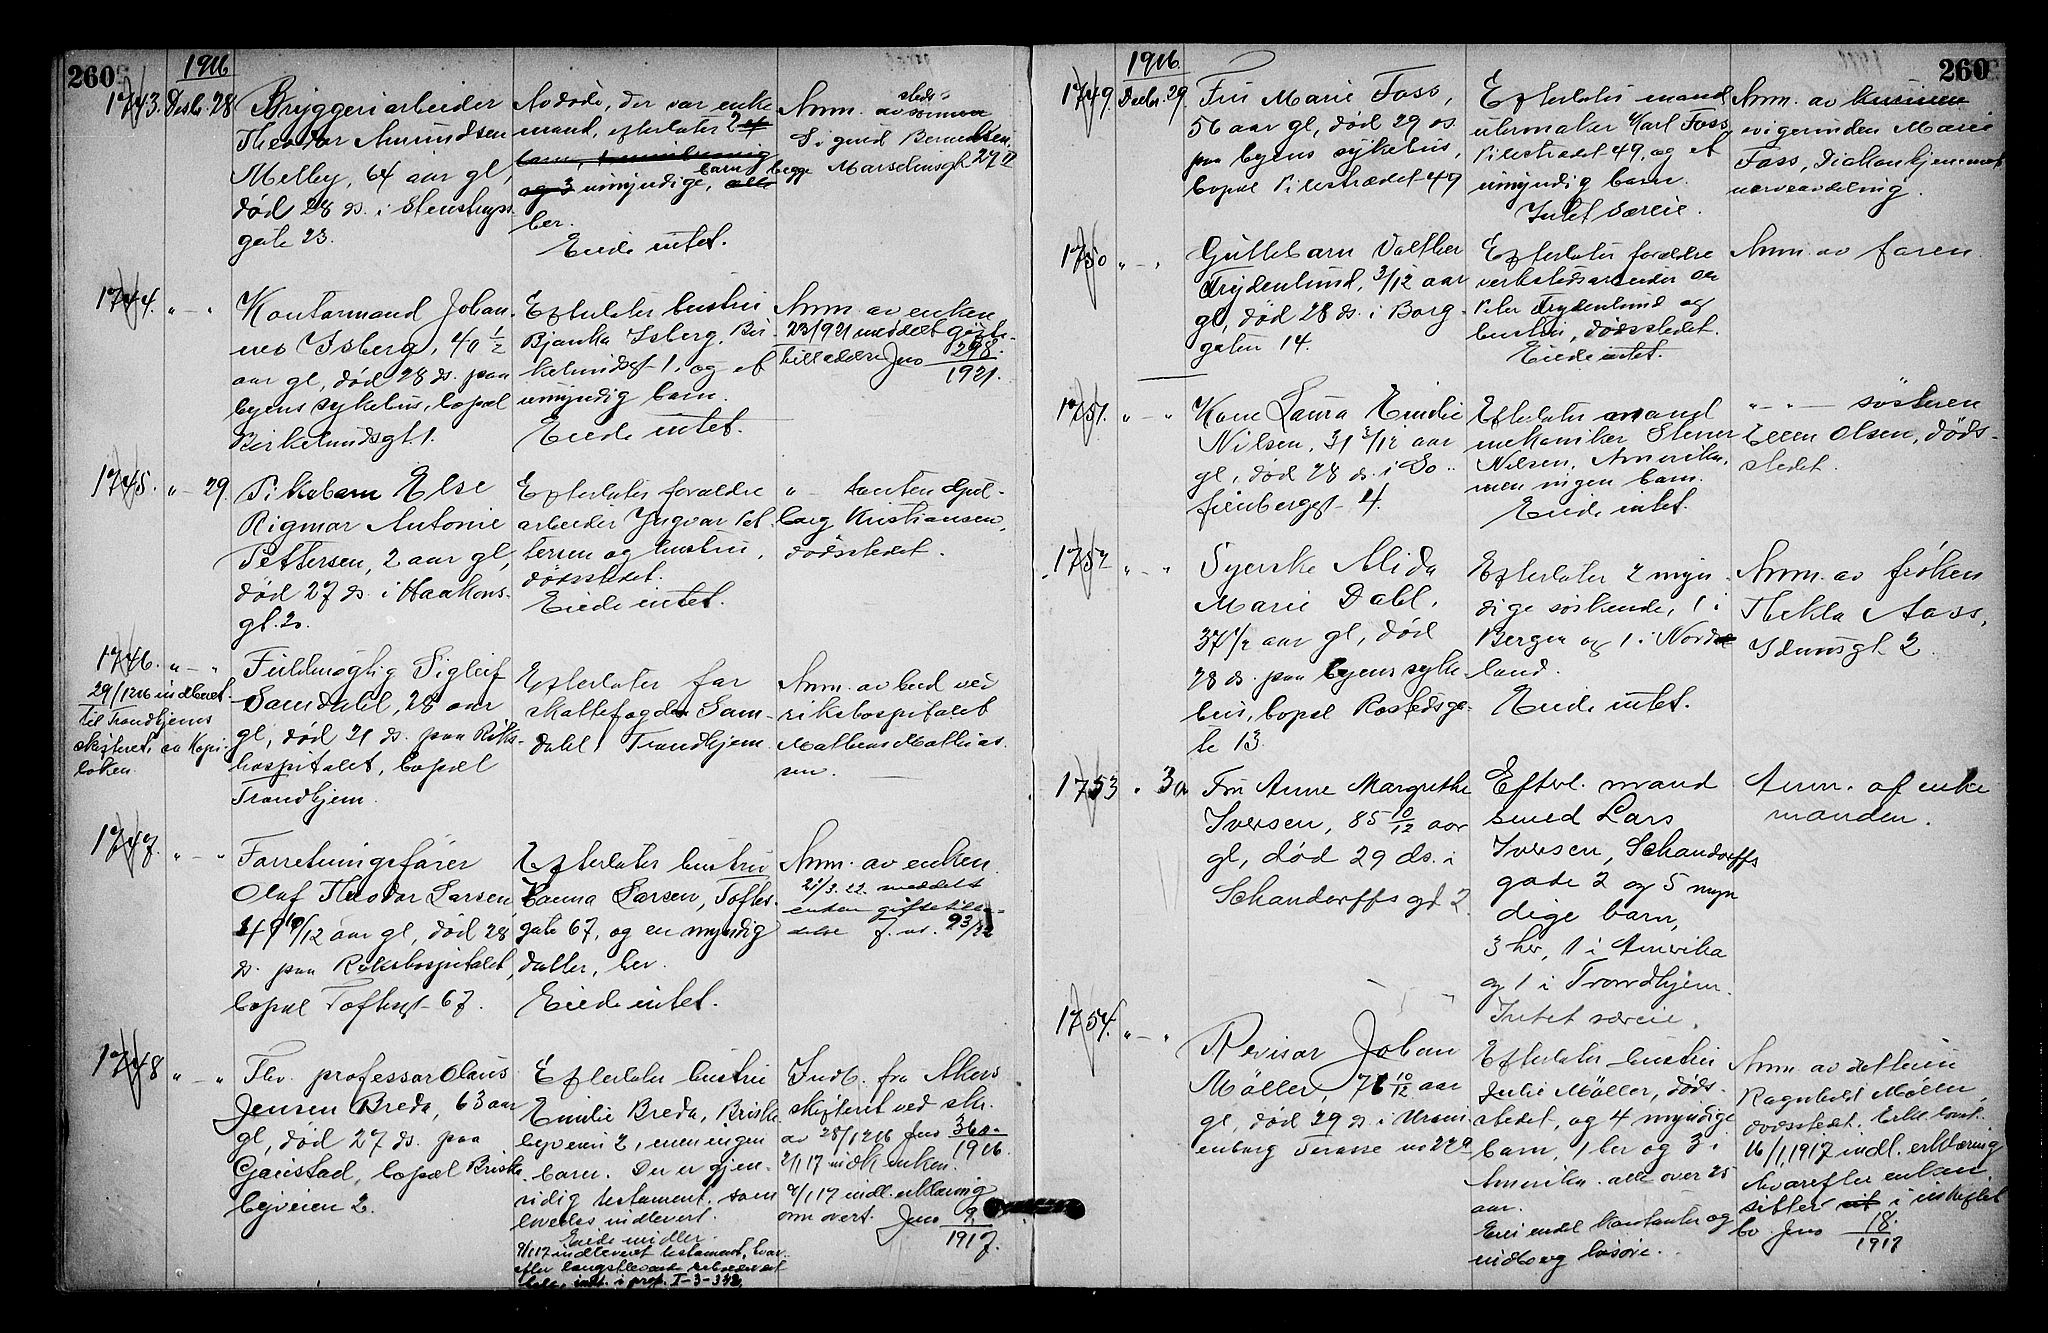 260
1916
1743. Desb. 28
Bryggeriarbeider
Theodor Amundsen
Melby, 64 aar gl,
død 28 ds. i Stenstrups
gate 23.
Avdøde, der var enke
mand, efterlater 2
barn,
og 3 umyndige, barn, alle
her.
Eiede intet.
Anm. av sønnen
Sigurd
begge Marselinsgt. 29
1744. " - "
Kontormand Johan
nes Isberg, 40 1/2
aar gl, død 28 ds. paa
byens sykehus, bopæl
Birkelundsgt. 1.
Efterlater hustru
Bjanka Isberg, Bir
kelundsgt 1, og et
umyndig barn.
Eiede intet.
Anm. av enken
23/921 meddelt gifte-
tilladelse Jno 298.
1921.
1745. " - 29.
Pikebarn Else
Rigmor Antonie
Pettersen, 2 aar gl,
død 27 ds. i Haakons-
gt. 20.
Efterlater forældre
arbeider Yngvar Pet
tersen og hustru,
dødsstedet.
Eiede intet.
" - tanten Gud-
borg Kristiansen,
dødsstedet.
1746. " - "
29/1216 indberet.
til Trondhjems
skifteret, se Kopi-
boken.
Fuldmægtig Sigleif
Samdahl, 28 aar
gl, død 21 ds. paa Riks-
hospitalet, bopæl
Trondhjem.
Efterlater far
skattefogden Sam-
dahl Trondhjem
Anm. av bud ved
rikshospitalet
Mathias Mathias
sen.
1747. " - "
Forretningsfører
Olaf Theodor Larsen
49 10/12 aar gl, død 28
ds. paa Rikshospitalet,
bopæl Toftesgt- 67.
Efterlater hustru
Hanna Larsen, Toftes-
gate 67, og en myndig
datter, her.
Eiede intet.
Anm. av enken.
21/3.22. meddelt
enken giftetilla-
delse J. no. 93/22
1748 " - "
Fhv. professor Olaus
Jensen Breda, 63 aar
gl, død 27 ds. paa
Gaustad, bopæl Briske
byveien 2.
Efterlater hustru
Emilie Breda, Briske
byveien 2, men ingen
barn. Der er gjen-
sidig testament, som
lovedes indlevert.
Eiede midler.
9/117 indleveret testament, hvor-
efter længstlevende
intb. i prot. I-3-342
Indb. fra Akers
skifteret ved skr.
av 28/1216 Jno 360.
1916.
2/117 indk. enken.
9/117 indl. erklæring
om overt. Jno 9
1917.
260
1916.
1749. Decbr. 29.
Fru Marie Foss,
56 aar gl, død 29 ds.
paa byens sykehus,
bopæl Pilestrædet 49
Efterlater mand
urmaker Karl Foss
Pilestrædet 49, og et
umyndig barn.
Intet særeie.
Anm. av
svigerinden Marie
Foss, Diakonhjemmet
nerveavdeling.
1750 " - "
Guttebarn Walther
Frydenlund, 3/12 aar
gl, død 28 ds. i Borg-
gaten 14.
Efterlater forældre
verkstedsarbeider
Peter Frydenlund og
hustru, dødsstedet.
Eiede intet.
Anm. av faren.
1751. " - "
Kone Laura Emilie
Nilsen, 31 3/12 aar
gl, død 28 ds. i So-
fienberggt- 4.
Efterlater mand
mekaniker Stener
Nilsen, Amerika,
men ingen barn.
Eiede intet.
" - " - søsteren
Ellen Olsen, døds-
stedet.
1752 " - "
Syerske Alida
Marie Dahl,
37 1/2 aar gl, død
28 ds. paa byens syke
hus, bopæl Rostedsga-
te 13.
Efterlater 2 myn
dige søskende, 1 i
Bergen og 1 i Nord
land.
Eiede intet.
Anm. av frøken
Thekla Aass,
Idunsgt. 2.
1753 " 30
Fru Anne Margrethe
Iversen, 85 10/12 aar
gl, død 29 ds. i
Schandorffs gt. 2
Efterl. mand
smed Lars
Iversen, Schandorffs
gade 2 og 5 myn
dige barn,
3 her, 1 i Amerika
og 1 i Trondhjem.
Intet særeie.
Anm. af enke
manden.
1754. " - "
Revisor Johan
Møller, 76 10/12 aar
gl, død 29 ds. i Uranien
borg Terasse no 22a
Efterlater hustru
Julie Møller, døds-
stedet, og 4 myndige
barn, 1 her og 3 i
Amerika. alle over 25
aar.
Eier endel kontanter og
indbo og løsøre.
Anm. av datteren
Ragnhild Møller,
dødsstedet.
16/1,1917 indl. erklæring
hvorefter enken
sitter i uskiftet
bo. Jno 18.
1917